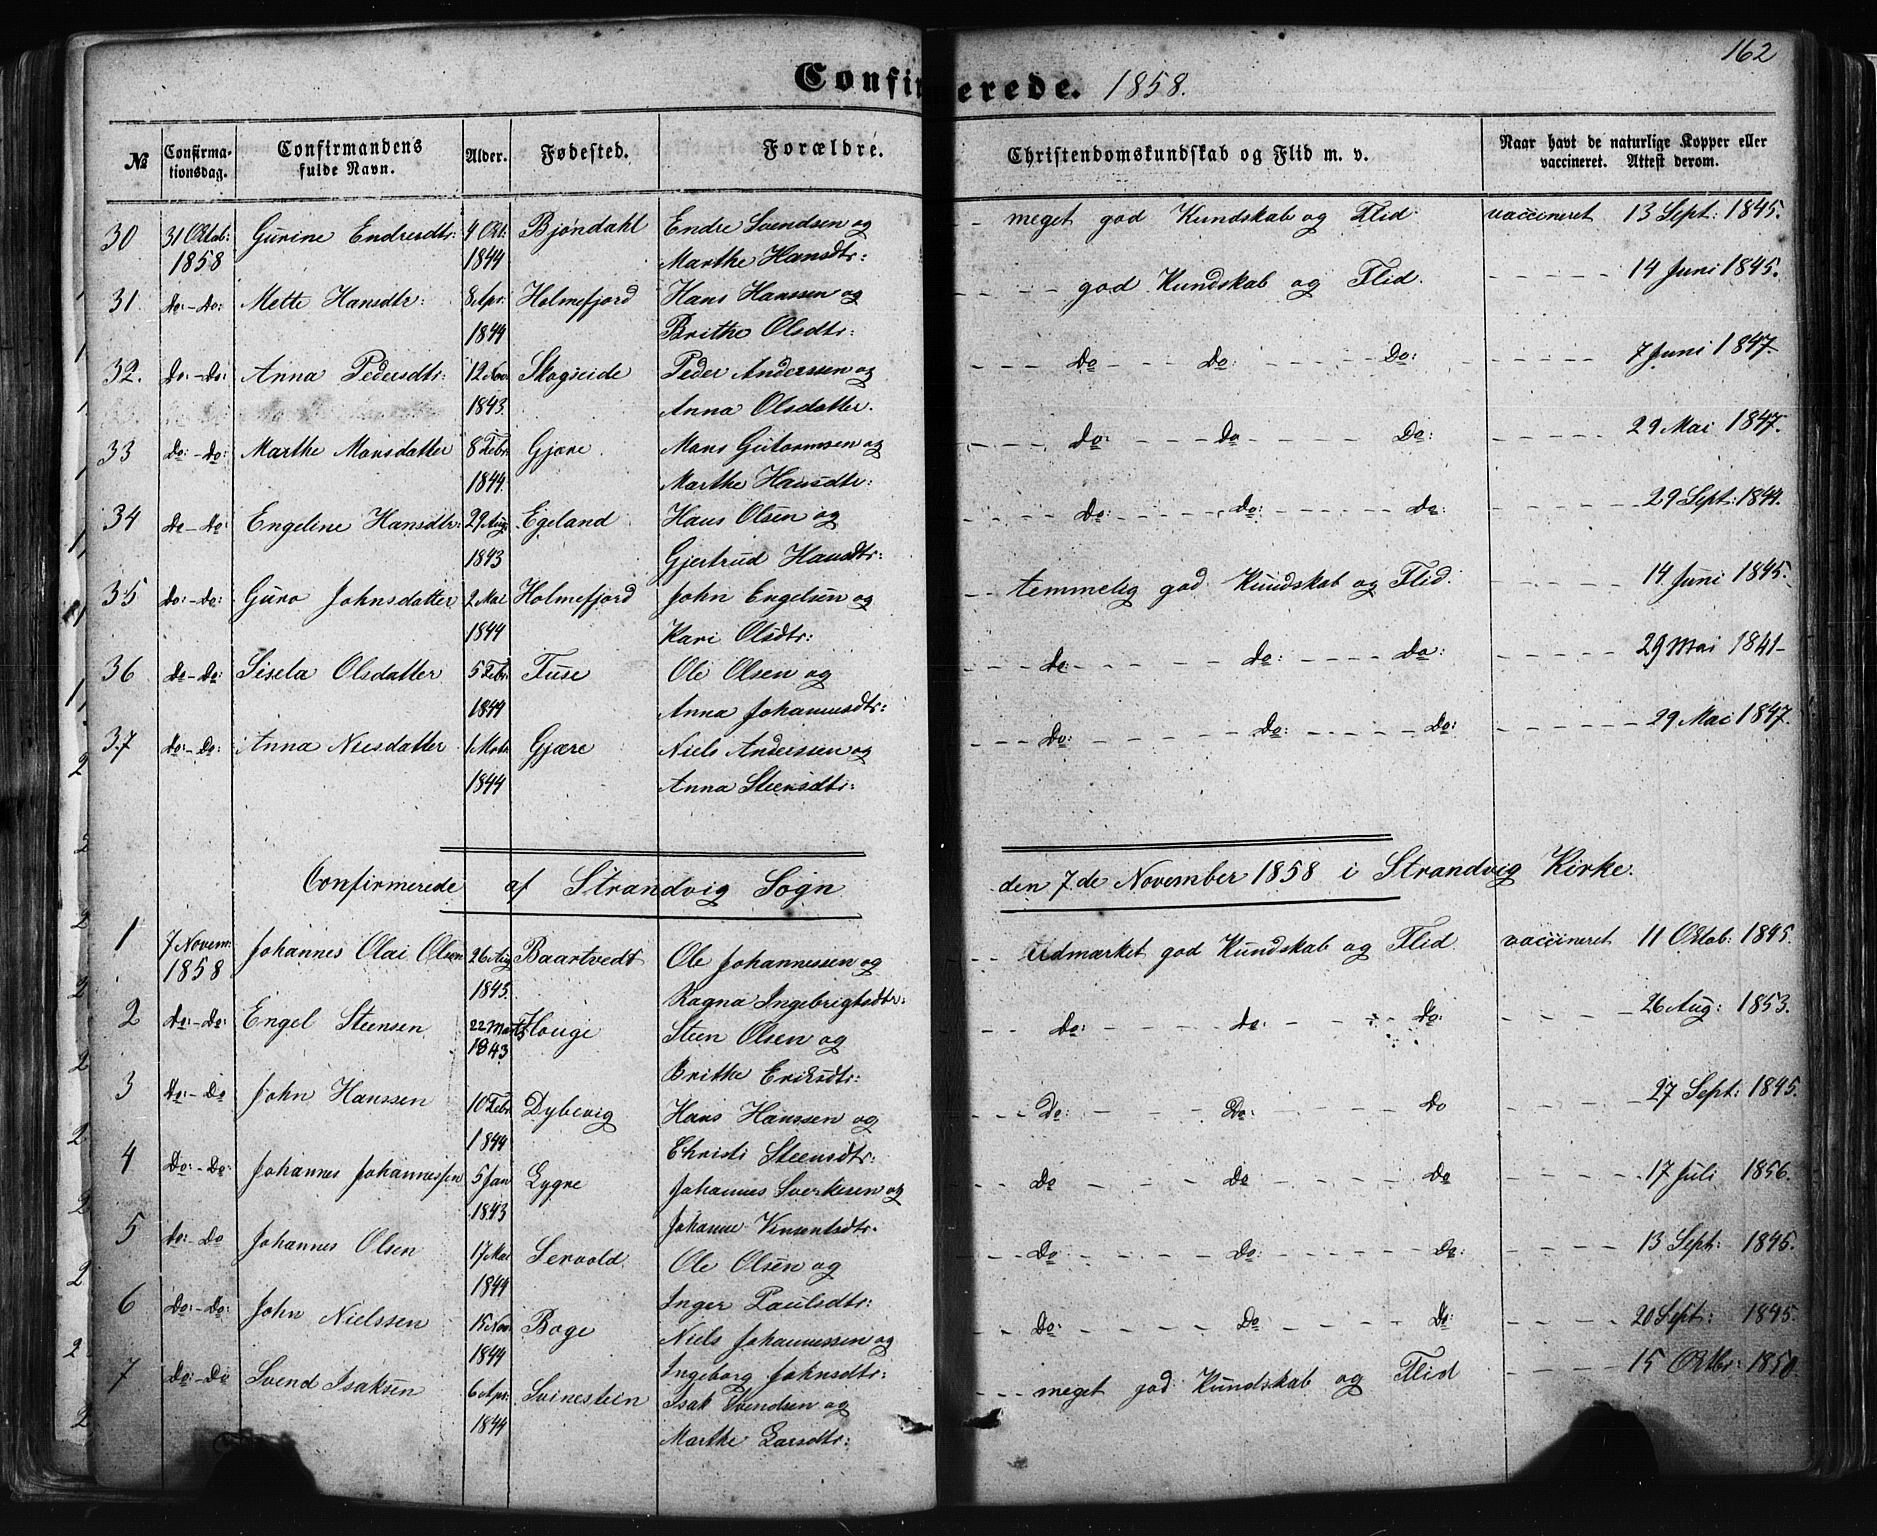 162
Confirmerede. 1858.
№ Confirma- Confirmandens Alder. Fødested. Forældre. Christendomskundskab og Flid m. v. Naar havt de naturlige Kopper eller
tionsdag. fulde Navn. vaccineret. Attest derom.
30 31 Oktob: Gurine Endresdtr: 4 Okt: Bjöndahl Endre Svendsen og - - meget god Kundskab og Flid vaccineret 13 Sept: 1845.
1858 1844 Marthe Hansdtr:
31. do:-do: Mette Hansdtr: 8 Apr. Holmefjord Hans Hanssen og - - - - god Kundskab og Flid. - - - - - 14 Juni 1845.
1844 Brithe Olsdtr:
32. Do:-Do: Anna Pedersdtr: 12 Nov Skogseide Peder Anderssen og Do - - - Do: - - - Do: - - - - - 7 Juni 1847.
1843. Anna Olsdatter.
33 Do:-Do: Marthe Monsdatter 8 Febr Gjære Mons Gutormsen og - - - - do: - - - do - - - - Do: - - - - - 29 Mai 1847.
1844. Marthe Hansdtr:
34 Do-do: Engeline Hansdtr: 29 Aug. Egeland Hans Olsen og - - - - Do: - - - - do: - - - - do: - - - - - 29 Sept: 1844.
1843 Gjertrud Hansdtr:
35 Do:-do: Guro Johnsdatter 2 Mai Holmefjord John Engelsen og - - temmelig god Kundskab og Flid. - - - - - 14 Juni 1845.
1844 Kari Olsdtr:
36 Do-Do: Sisela Olsdatter 5 Febr Fuse Ole Olsen og - - - do: - - - - do: - - - - Do: - - - - - 29 Mai 1841-
1844 Anna Johannesdtr:
37 do:-Do: Anna Nielsdatter 1 Mots Gjære Niels Anderssen og - - - Do: - - - - Do: - - - - Do: - - - - - 29 Mai 1847.
1844 Anna Steensdtr:
Confirmerede af Strandvig Sogn den 7de November 1858 i Strandvig Kirke.
1 7 Novem: Johannes Olai Olsen 26 Aug Baartvedt Ole Johannessen og Udmærket god Kundskab og Flid vaccineret 11 Oktob: 1845.
1858 1845. Ragna Ingebrigtsdtr:
2 Do:-Do: Engel Steensen 22 Mart Houge Steen Olsen og - - Do: - - - - do: - - - - Do: - - - - - 26 Aug: 1853.
1843 Brithe Eriksdtr:
3 Do:-Do John Hanssen 10 Febr Dybevig Hans Hanssen og - - - Do: - - - - Do: - - - - Do - - - - 27 Sept: 1845.
1844 Christi Steensdtr:
4 Do:-Do: Johannes Johannessen 5 Jan Lygre Johannes Sverkesen og - - - Do - - - - Do - - - - Do - - - - 17 Juli 1856.
1843 Johanne Vinsentsdtr:
5 Do:-Do Johannes Olsen 17 Mai Servold Ole Olsen og - - - Do: - - - - Do: - - - - Do: - - - - 13 Sept: 1845.
1844 Inger Paulsdtr:
6 Do:-Do: John Nielssen 15 Nov Boge Niels Johannessen og - - - Do: - - - - Do: - - - - Do: - - - - 20 Sept: 1845.
1844 Ingeborg Johnsdtr:
7 Do:-Do Svend Isaksen 6 Apr. Svinestein Isak Svendsen og - - - meget god Kundskab og Flid - - - - 15 Oktbr: 1850.
1844 Marthe Larsdtr: